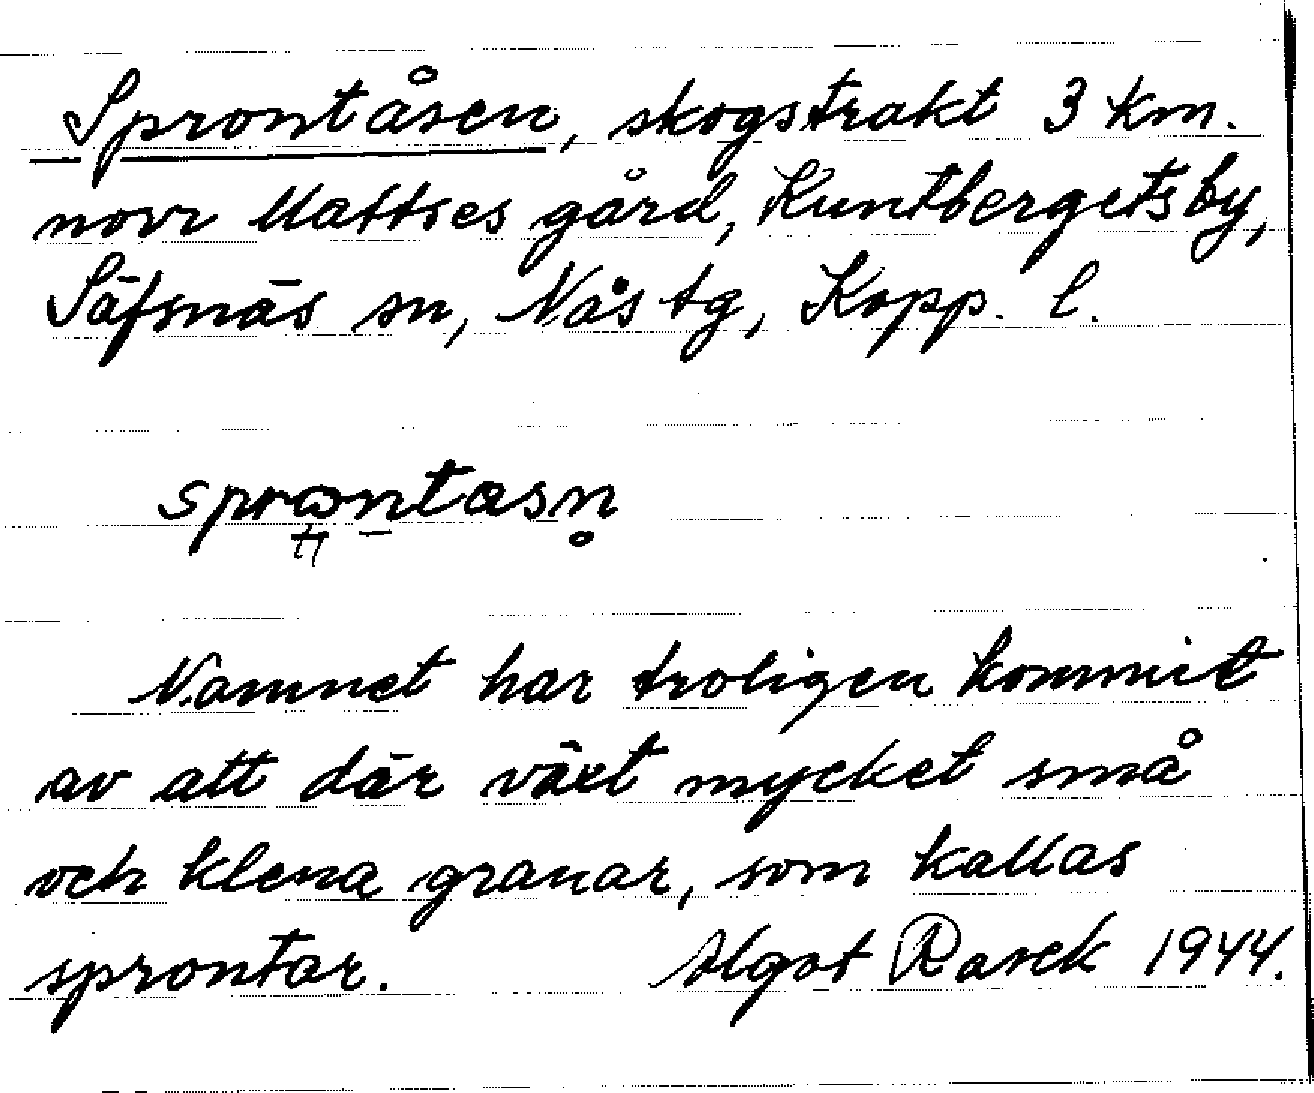 Sprontåsen, skogstrakt 3 km.
norr Mattses gård, Kuntbergets by,
Säfsnäs sn, Nås tg, Kopp. l.
sprωntasn̥
Namnet har troligen kommit
av att där växt mycket små
och klena granar, som kallas
sprontar. Algot Rasck 1944.